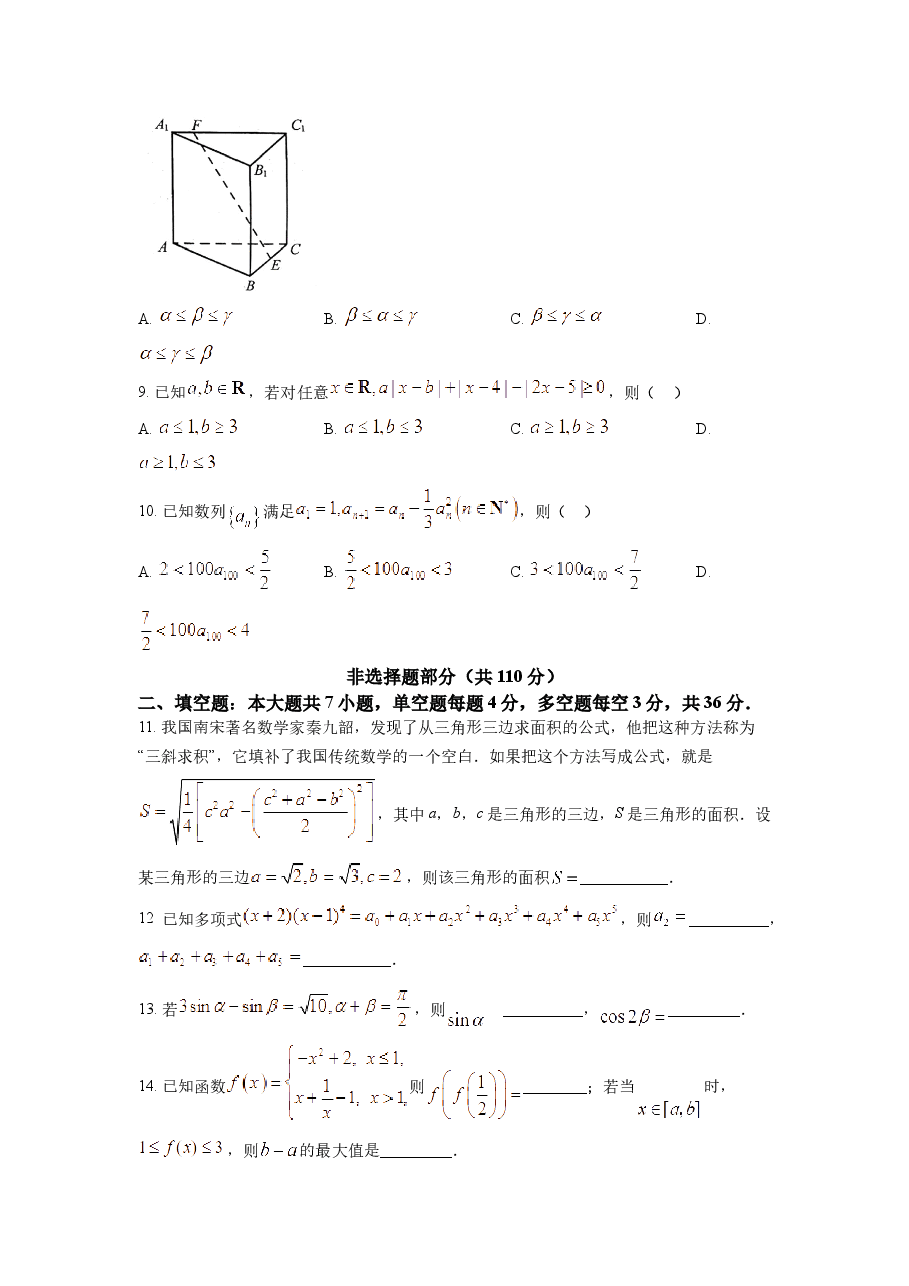 A₁ F C₁
B₁
A C
E
B
A. α≤β≤γ B. β≤α≤γ C. β≤γ≤α D.
α≤γ≤β
9. 已知a,b∈R，若对任意x∈R,a|x−b|+|x−4|−|2x−5|≥0，则（ ）
A. a≤1,b≥3 B. a≤1,b≤3 C. a≥1,b≥3 D.
a≥1,b≤3
10. 已知数列{aₙ}满足a₁=1,aₙ₊₁=aₙ−\frac{1}{3}aₙ²(n∈N*)，则（ ）
A. 2<100a₁₀₀<\frac{5}{2} B. \frac{5}{2}<100a₁₀₀<3 C. 3<100a₁₀₀<\frac{7}{2} D.
\frac{7}{2}<100a₁₀₀<4
非选择题部分（共 110 分）
二、填空题：本大题共 7 小题，单空题每题 4 分，多空题每空 3 分，共 36 分．
11. 我国南宋著名数学家秦九韶，发现了从三角形三边求面积的公式，他把这种方法称为
“三斜求积”，它填补了我国传统数学的一个空白．如果把这个方法写成公式，就是
S=\sqrt{\frac{1}{4}\left[c²a²−\left(\frac{c²+a²−b²}{2}\right)²\right]}，其中 a，b，c 是三角形的三边，S 是三角形的面积．设
某三角形的三边a=√2,b=√3,c=2，则该三角形的面积S=___________．
12 已知多项式(x+2)(x−1)⁴=a₀+a₁x+a₂x²+a₃x³+a₄x⁴+a₅x⁵，则a₂=__________，
a₁+a₂+a₃+a₄+a₅=___________．
13. 若3sinα−sinβ=√10,α+β=\frac{π}{2}，则sinα __________，cos2β=_________．
14. 已知函数f(x)=\begin{cases}−x²+2, x≤1,\\x+\frac{1}{x}−1, x>1,\end{cases}则f\left(f\left(\frac{1}{2}\right)\right)=________；若当x∈[a,b]时，
1≤f(x)≤3，则b−a的最大值是_________．